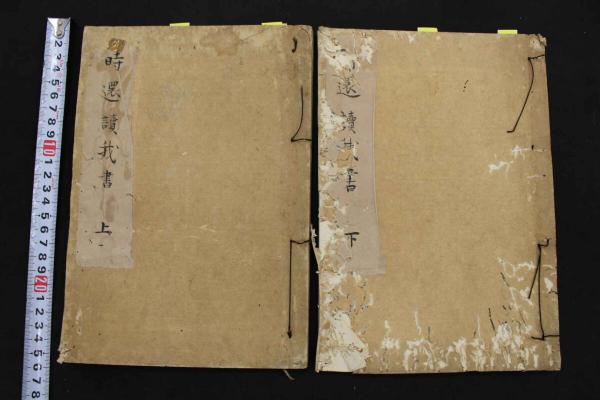 時還讀我書 上
還讀我書 下
2 3 4 5 6 7 8 9 10 1 2 3 4 5 6 7 8 9 20 1 2 3 4 5 6 7 8